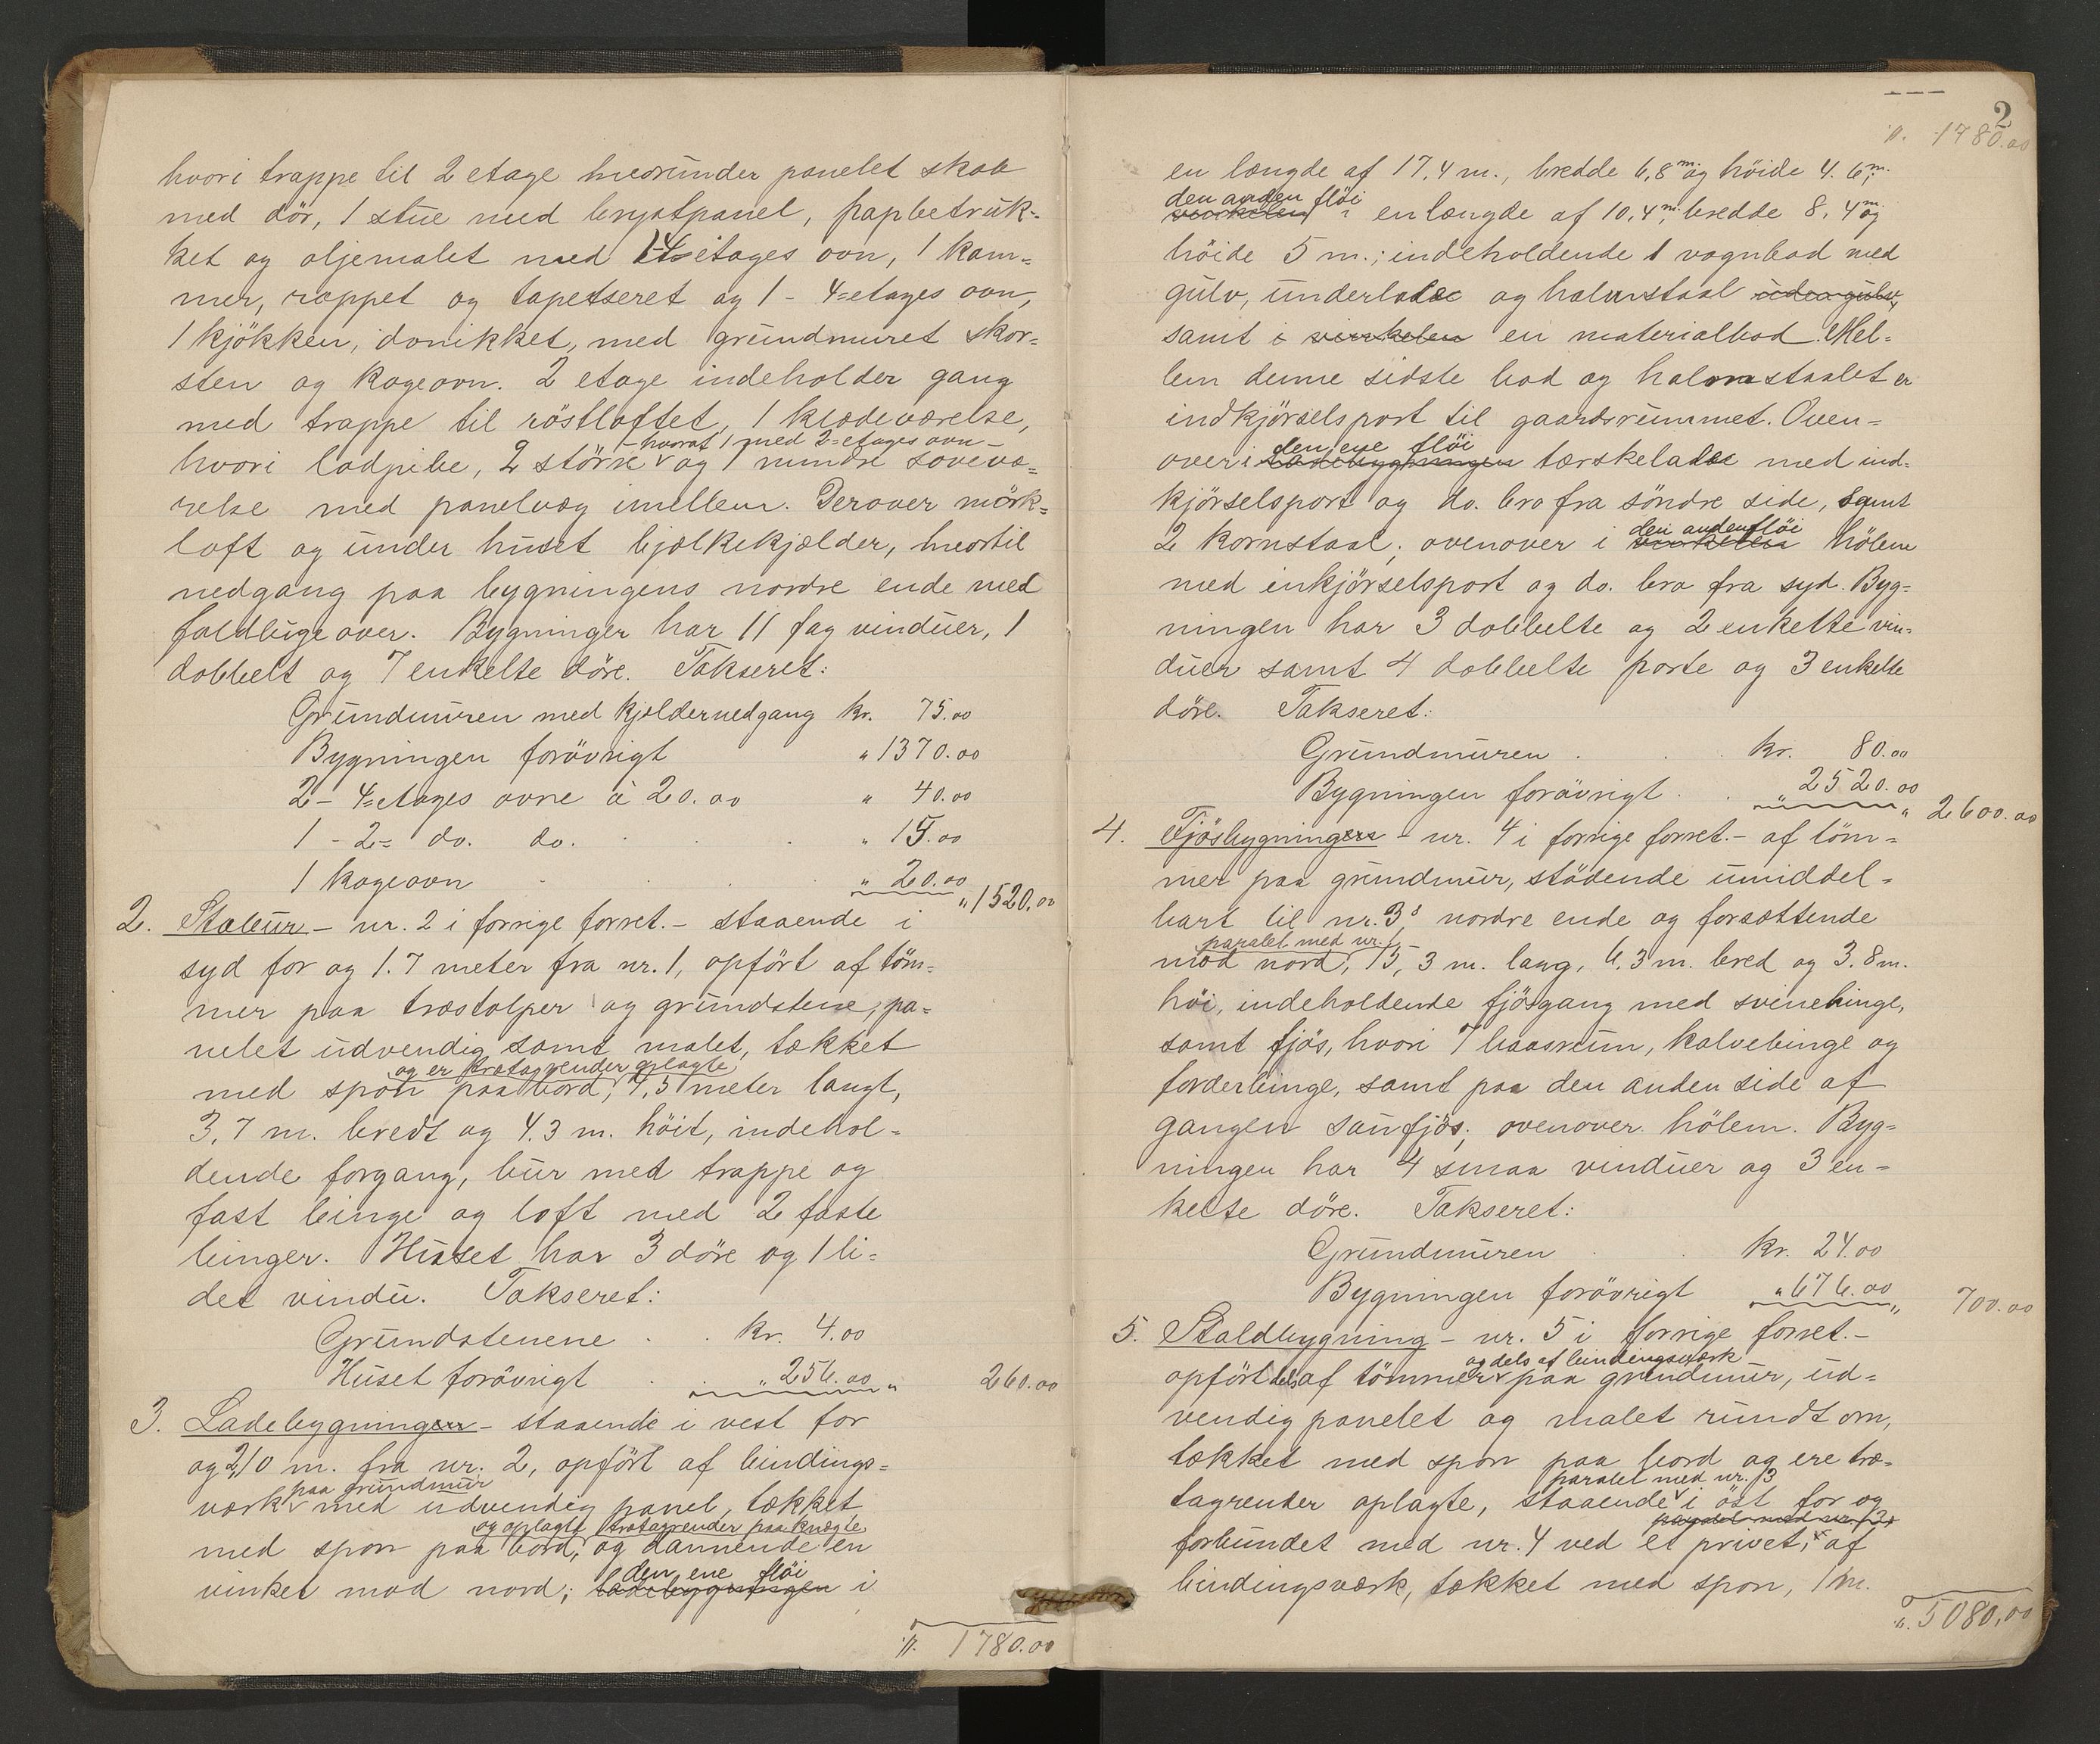 hvori trappe til 2 etage hvorunder panelet skab
med dör, 1 stue med brystpanel, papbetruk-
ket og oljemalet med 1-4=etages ovn, 1 kam=
mer, rappet og tapetseret og 1 - 4=etages ovn,
1 kjökken, donikket, med grundmuret skor=
sten og kogeovn. 2 etage indeholder gang
med trappe til röstloftet, 1 klædeværelse,
- hvoraf 1 med 2=etages ovn -
hvori ladpibe, 2 större og 1 mindre sovevæ=
relse med panelvæg imellem. Derover mörk=
loft og under huset bjælkekjælder, hvortil
nedgang paa bygningens nordre ende med
faldluge over. Bygninger har 11 fag vinduer, 1
dobbelt og 7 enkelte döre. Takseret:
Grundmuren med kjældernedgang kr. 75.00
Bygningen forövrigt " 1370.00
2 - 4=etages ovne à 20.00 " 40.00
1 - 2= do. do. " 15.00
1 kogeovn " 20.00
" 1520.00
2. Stabur - nr. 2 i forrige forret. - staaende i
syd for og 1.7 meter fra nr. 1, opfört af töm=
mer paa træstolper og grundstene, pa=
nelet udvendig samt malet, tækket
og er trætagrender oplagte
med spon paa bord, 4,5 meter langt,
3,7 m. bredt og 4.3 m. höit, indehol=
dende forgang, bur med trappe og
fast binge og loft med 2 faste
binger. Huset har 3 döre og 1 li=
det vindu. Takseret:
Grundstenene . . kr. 4.00
Huset forövrigt . " 256.00 " 260.00
3. Ladebygningen - staaende i vest for
og 2,10 m. fra nr. 2, opfört af bindings=
paa grundmur
værk med udvendig panel, tækket
og oplagte trætagrender paa knægte
med spon paa bord, og dannende en
den ene flöi
vinkel mod nord; ladebygningen i
1780.00
2
1780.00
en længde af 17,4 m., bredde 6,8 m. og höide 4.6 m.
den anden flöi
vinkelen i en længde af 10,4 m. bredde 8,4 m. og
höide 5 m.; indeholdende 1 vognbod med
gulv, underlade og halmstaal uden gulv,
samt i vinkelen en materialbod. Mel=
lem denne sidste bod og halmstaalet er
indkjörselsport til gaardsrummet. Oven=
den ene flöi
over i ladebygningen tærskelade med ind=
kjörselsport og do. bro fra söndre side, samt
den anden flöi
2 kornstaal; ovenover i vinkelen hölem
med inkjörselsport og do. bro fra syd. Byg=
ningen har 3 dobbelte og 2 enkelte vin=
duer samt 4 dobbelte porte og 3 enkelte
döre. Takseret:
Grundmuren . . kr. 80.00
Bygningen forövrigt . . " 2520.00 " 2600.00
4. Fjösbygningen - nr. 4 i forrige forret. - af töm=
mer paa grundmur, stödende umiddel=
bart til nr. 3s nordre ende og forsættende
paralel med nr. 1
mod nord, 15,3 m. lang, 6,3 m. bred og 3.8 m.
höi, indeholdende fjösgang med svinebinge,
samt fjös, hvori 7 baasrum, kalvebinge og
forderbinge, samt paa den anden side af
gangen saufjös; ovenover hölem. Byg=
ningen har 4 smaa vinduer og 3 en=
kelte döre. Takseret:
Grundmuren . . kr. 24.00
Bygningen forövrigt " 676.00 " 700.00
5. Staldbygning - nr. 5 i forrige forret. -
og dels af bindingsværk
opfört dels af tömmer paa grundmur, ud=
vendig panelet og malet rundt om,
tækket med spon paa bord og ere træ=
paralel med nr. 3
tagrender oplagte, staaende i öst for og
paralel med nr. 3,
forbundet med nr. 4 ved et privet, af
bindingsværk, tækket med spon, 1 m.
5080,00